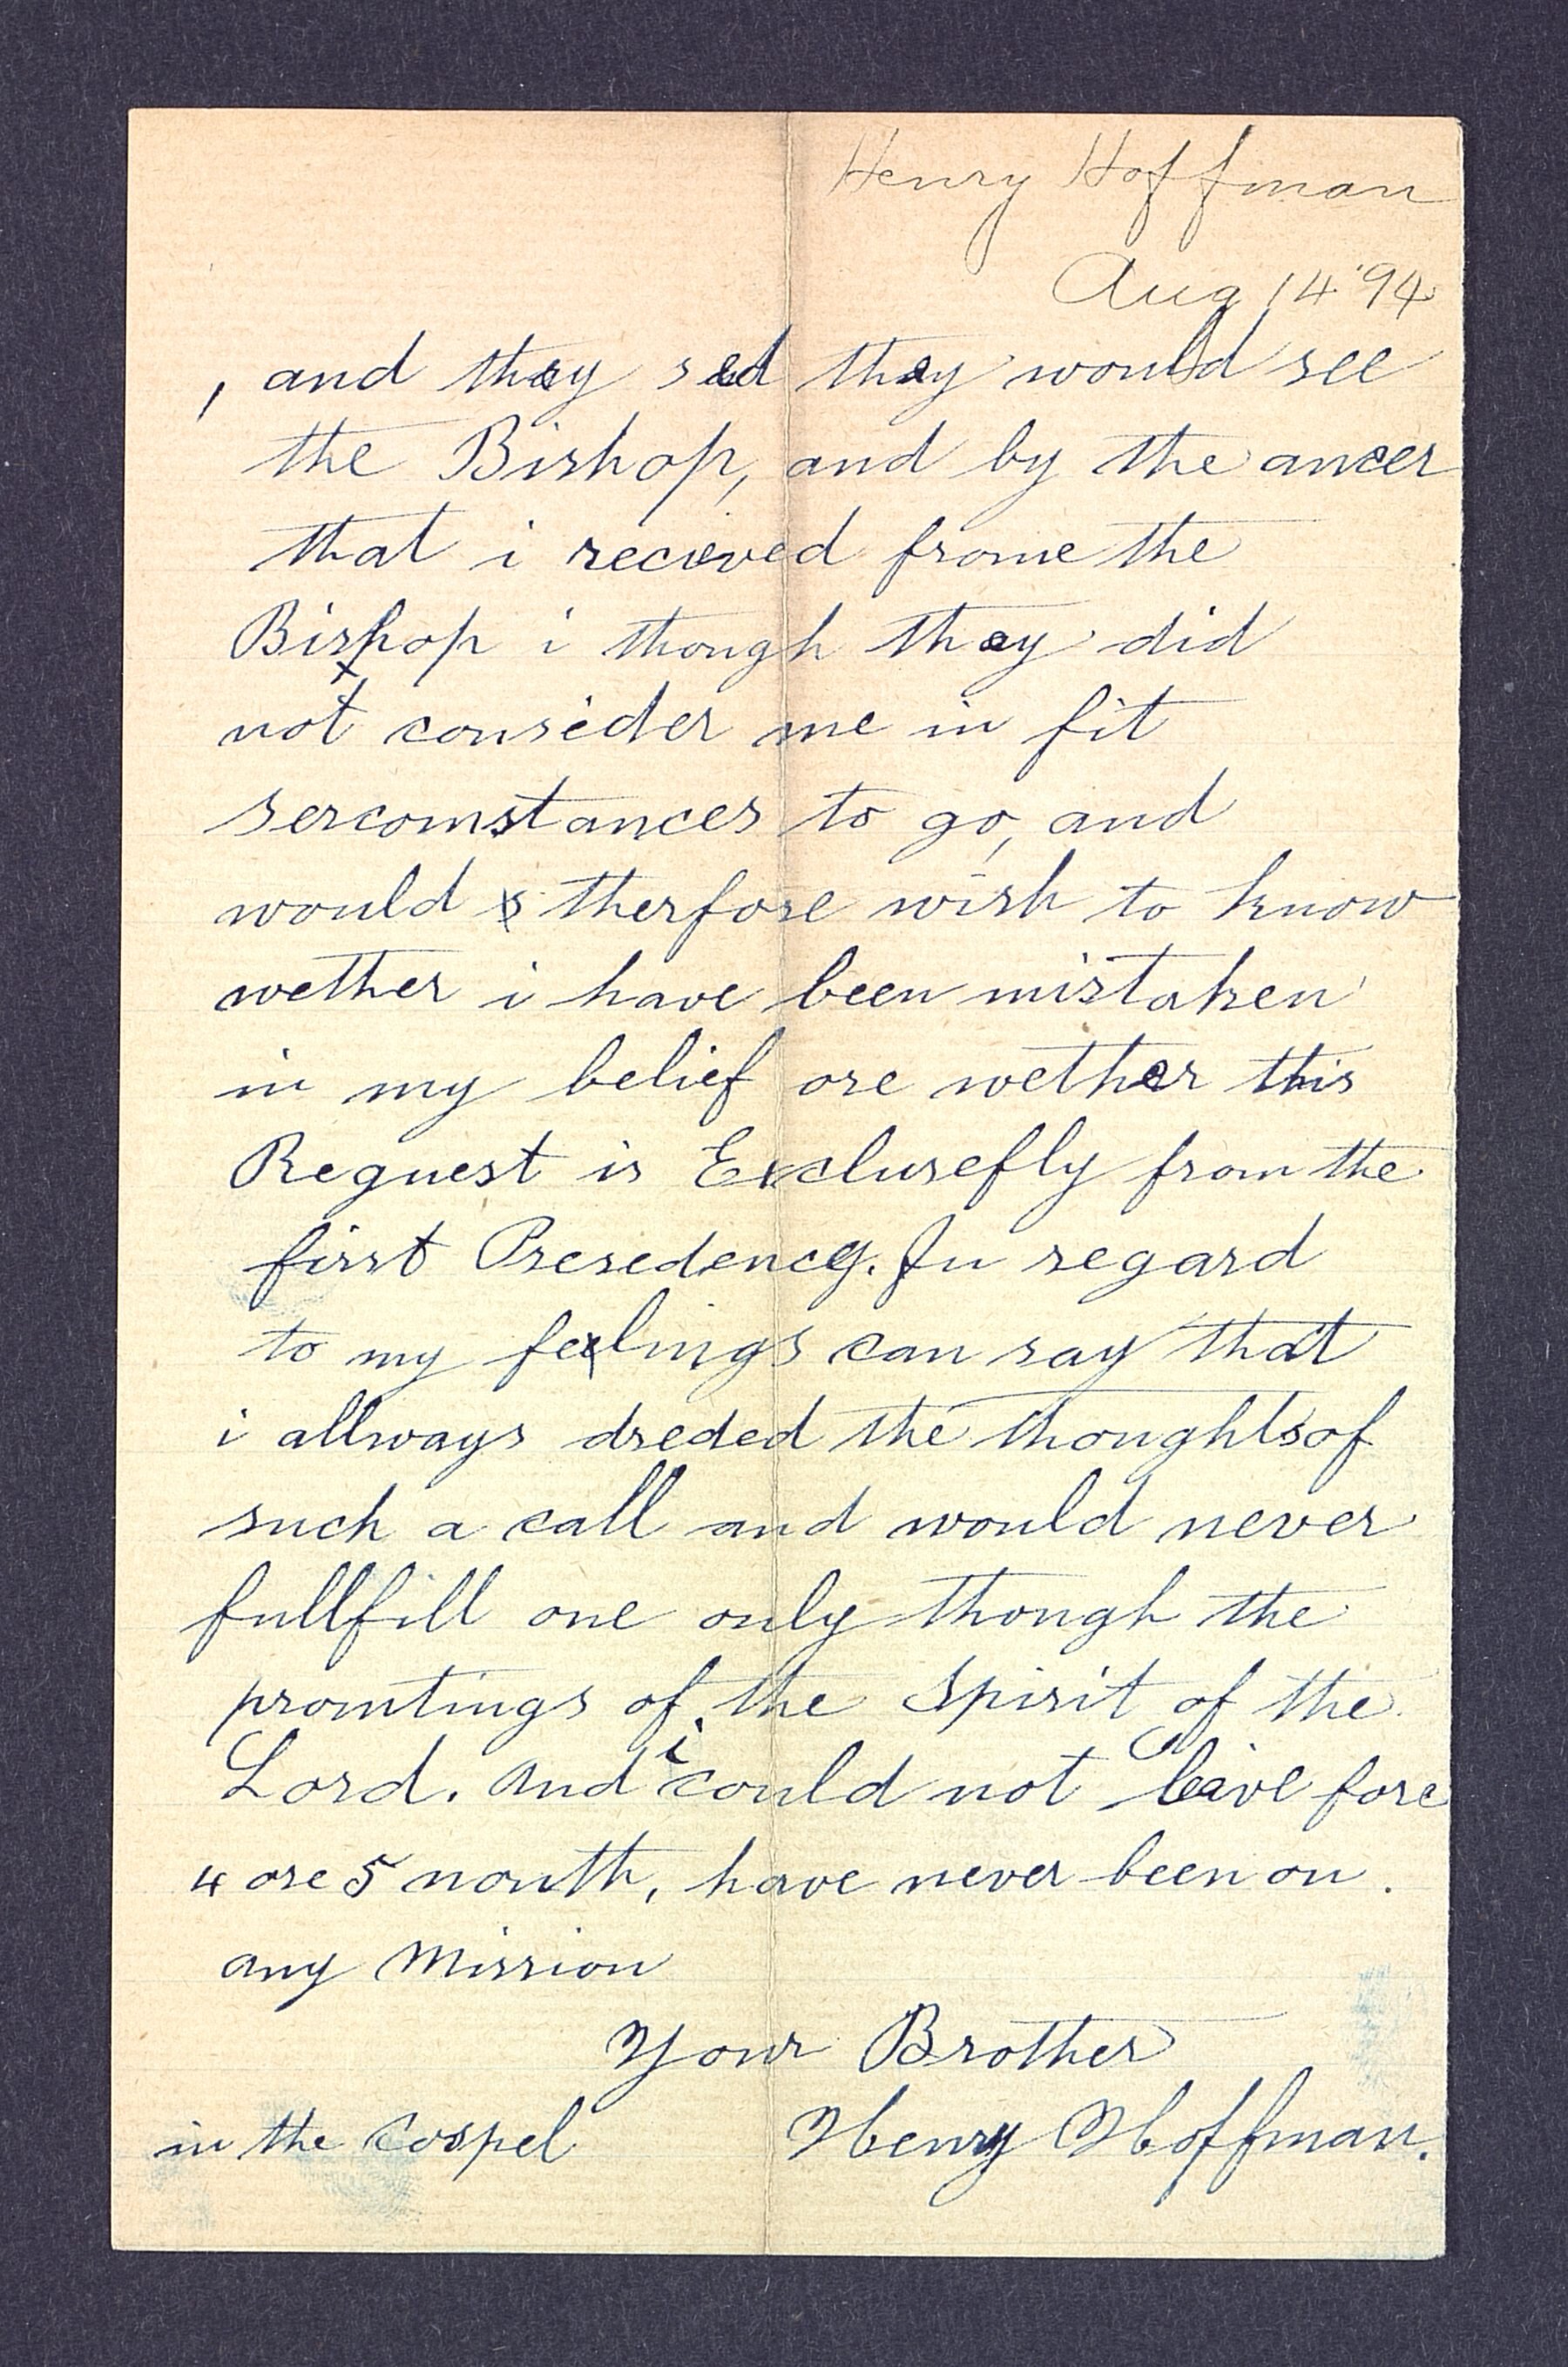 Henry Hoffman
Aug 14 '94
, and they sed they would see
the Bishop, and by the ancer
that i recieved frome the
Bishop i though they did
not consider me in fit
sercomstances to go, and
would therfore wish to know
wether i have been mistaken
in my belief ore wether this
Request is Exclusefly from the
first Presedency. In regard
to my feelings can say that
i allways dreded the thoughts of
such a call and would never
fullfill one only though the
promtings of the Spirit of the
Lord. and i could not leave fore
4 ore 5 month, have never been on.
any Mission
Your Brother
in the Gospel Henry Hoffman.